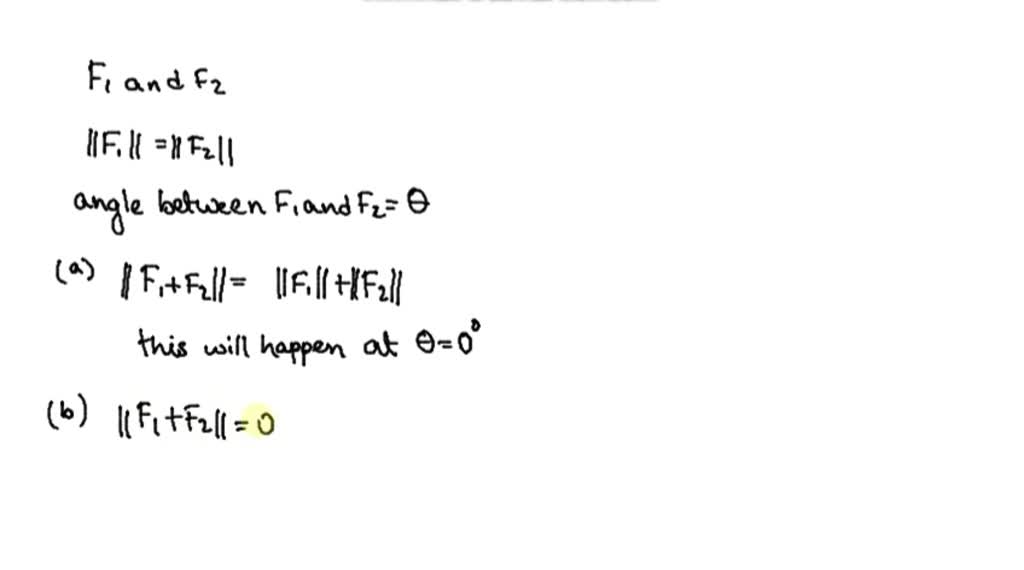 F₁ and F₂
||F₁|| = ||F₂||
angle between F₁ and F₂ = θ
(a) ||F₁+F₂|| = ||F₁|| + ||F₂||
this will happen at θ=0°
(b) ||F₁+F₂|| = 0